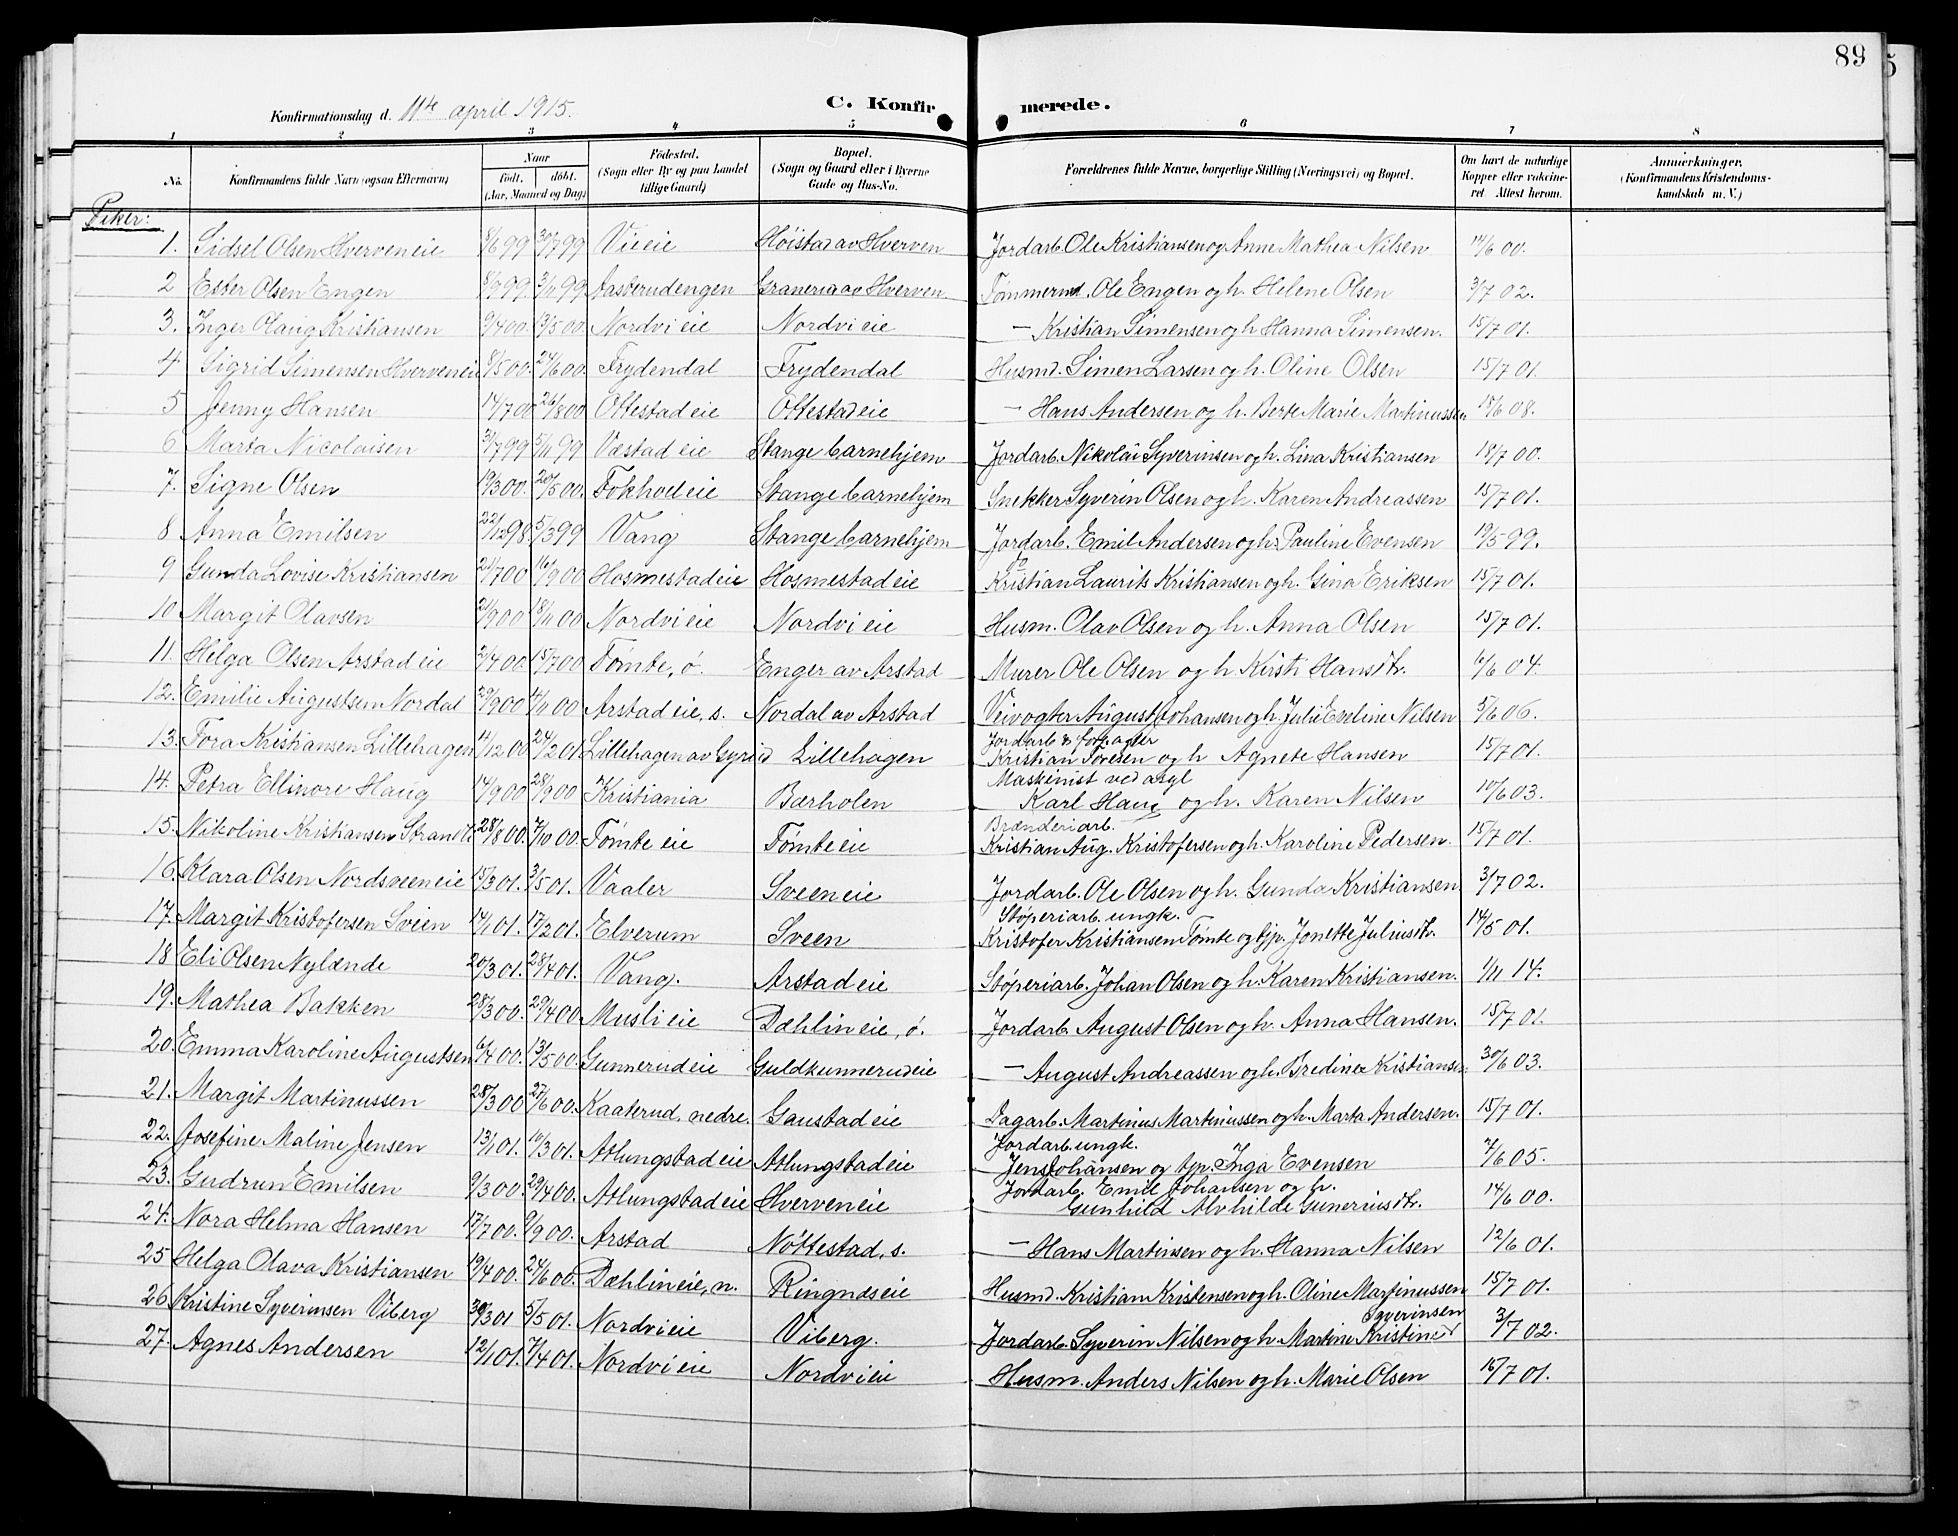 89
Konfirmationsdag d. 11te april 1915.
C. Konfirmerede.
1 2 3 4 5 6 7 8
No. Konfirmandens fulde Navn (ogsaa Efternavn) Naar født. døbt. (Aar, Maaned og Dag) Fødested. (Sogn eller By og paa Landet tillige Gaard) Bopæl. (Sogn og Gaard eller i Byerne Gade og Hus-No. Forældrenes fulde Navne, borgerlige Stilling (Næringsvei) og Bopæl. Om havt de naturlige Kopper eller vakcineret Attest herom. Anmerkninger, (Konfirmandens Kristendomskundskab m. V.)
Piker:
1. Sidsel Olsen Hverveneie 8/6 99 30/7 99 Vieie Høistad av Hverven Jordarb. Ole Kristiansen og Anne Mathea Nilsen 14/6 00.
2 Ester Olsen Engen 8/9 99. 3/11 99 Aasterudengen Graneria av Hverven Tømmermd. Ole Engen og h. Helene Olsen 3/7 02.
3. Inger Olaug Kristiansen 9/4 00. 13/5 00. Nordvi eie Nordvi eie — Kristian Simensen og h. Hanna Simensen. 15/7 01.
4 Sigrid Simensen Hverveneie 8/5 00. 24/6 00. Frydendal Frydendal Husmd. Simen Larsen og h. Oline Olsen 15/7 01.
5 Jenny Hansen 14/7 00 26/8 00 Ottestad eie Ottestad eie — Hans Andersen og h. Berte Marie Martinussen 15/6 08.
6 Marta Nicolaisen 3/7 99 5/11 99 Væstad eie Stange barnehjem Jordarb. Nikolai Syverinsen og h. Lina Kristiansen 18/7 00.
7. Signe Olsen 19/3 00. 20/5 00. Fokhol eie Stange barnehjem Snekker Syverin Olsen og h. Karen Andreassen 15/7 01.
8 Anna Emilsen 22/12 98 5/3 99 Vang Stange barnehjem Jordarb. Emil Andersen og h. Pauline Evensen 19/5 99.
9 Gunda Lovise Kristiansen 21/7 00 16/9 00 Hosmestad eie Hosmestad eie do Kristian Laurits Kristiansen og h. Gina Eriksen 15/7 01.
10 Margit Olavsen 21/9 00 18/11 00 Nordvi eie Nordvi eie Husm. Olav Olsen og h. Anna Olsen 15/7 01.
11. Helga Olsen Arstad eie 2/4 00. 15/7 00 Tømte, ø. Enger av Arstad Murer Ole Olsen og h. Kirsti Hansdtr. 6/6 04.
12. Emilie Augustsen Nordal 29/9 00 4/11 00 Arstad eie, s. Nordal av Arstad Veivogter August Johansen og h. Julie Eveline Nilsen 5/6 06.
13. Tora Kristiansen Lillehagen 11/12 00 24/2 01 Lillehagen av Gyrid Lillehagen Jordarb & forpagter Kristian Toresen og h Agnete Hansen 15/7 01.
14. Petra Ellinore Haug 14/9 00 28/9 00 Kristiania Bærholen Maskinist ved asyl Karl Haug og h. Karen Nilsen 10/6 03.
15. Nikoline Kristiansen Strandli 28/8 00. 7/10 00. Tømte eie Tømte eie Brænderiarb. Kristian Aug. Kristofersen og h. Karoline Pedersen. 15/7 01.
16. Klara Olsen Nordsveeneie 15/3 01. 3/5 01. Vaaler Sveeneie Jordarb. Ole Olsen og h. Gunda Kristiansen. 3/7 02.
17. Margit Kristofersen Sveen 14/1 01. 17/2 01. Elverum Sveen Støperiarb. ungk. Kristofer Kristiansen Tømte og tjp. Jonette Juliusdtr. 14/5 01.
18 Eli Olsen Nylænde 20/3 01. 28/4 01. Vang. Arstad eie Støperiarb. Johan Olsen og h. Karen Kristiansen. 1/11 14.
19. Mathea Bakken 28/3 00. 29/4 00. Musli eie Dæhlin eie, ø. Jordarb. August Olsen og h. Anna Hansen. 15/7 01.
20. Emma Karoline Augustsen 6/4 00. 13/5 00. Gunnerud eie Guldkunnerud eie — August Andreassen og h. Bredine Kristiansen 30/6 03.
21. Margit Martinussen 28/3 00 27/6 00. Kaaterud, nedre. Gaustad eie Dagarb. Martinus Martinussen og h. Marta Andersen. 15/7 01.
22. Josefine Maline Jensen 13/1 01. 10/3 01. Atlungstad eie Atlungstad eie Jordarb. ungk. Jens Johansen og tjp. Inga Evensen 7/6 05.
23. Gudrun Emilsen 9/3 00. 29/4 00. Atlungstad eie Hverven eie Jordarb. Emil Johansen og h. Gunhild Alvhilde Gunneriusdtr. 14/6 00.
24. Nora Helma Hansen 17/7 00. 9/9 00. Arstad Nøttestad, s. — Hans Martinsen og h. Hanna Nilsen 12/6 01.
25 Helga Olava Kristiansen 19/4 00. 24/6 00. Dæhlin eie, n. Ringnæs eie Husmd. Kristian Kristensen og h. Oline Martinussen 15/7 01.
26 Kristine Syverinsen Viberg 30/3 01 5/5 01. Nordvi eie Viberg. Jordarb. Syverin Nilsen og h. Martine Kristine Syverinsen 3/7 02.
27. Agnes Andersen 12/1 01. 7/4 01. Nordvi eie Nordvi eie Husm. Anders Nilsen og h. Marie Olsen 15/7 01.